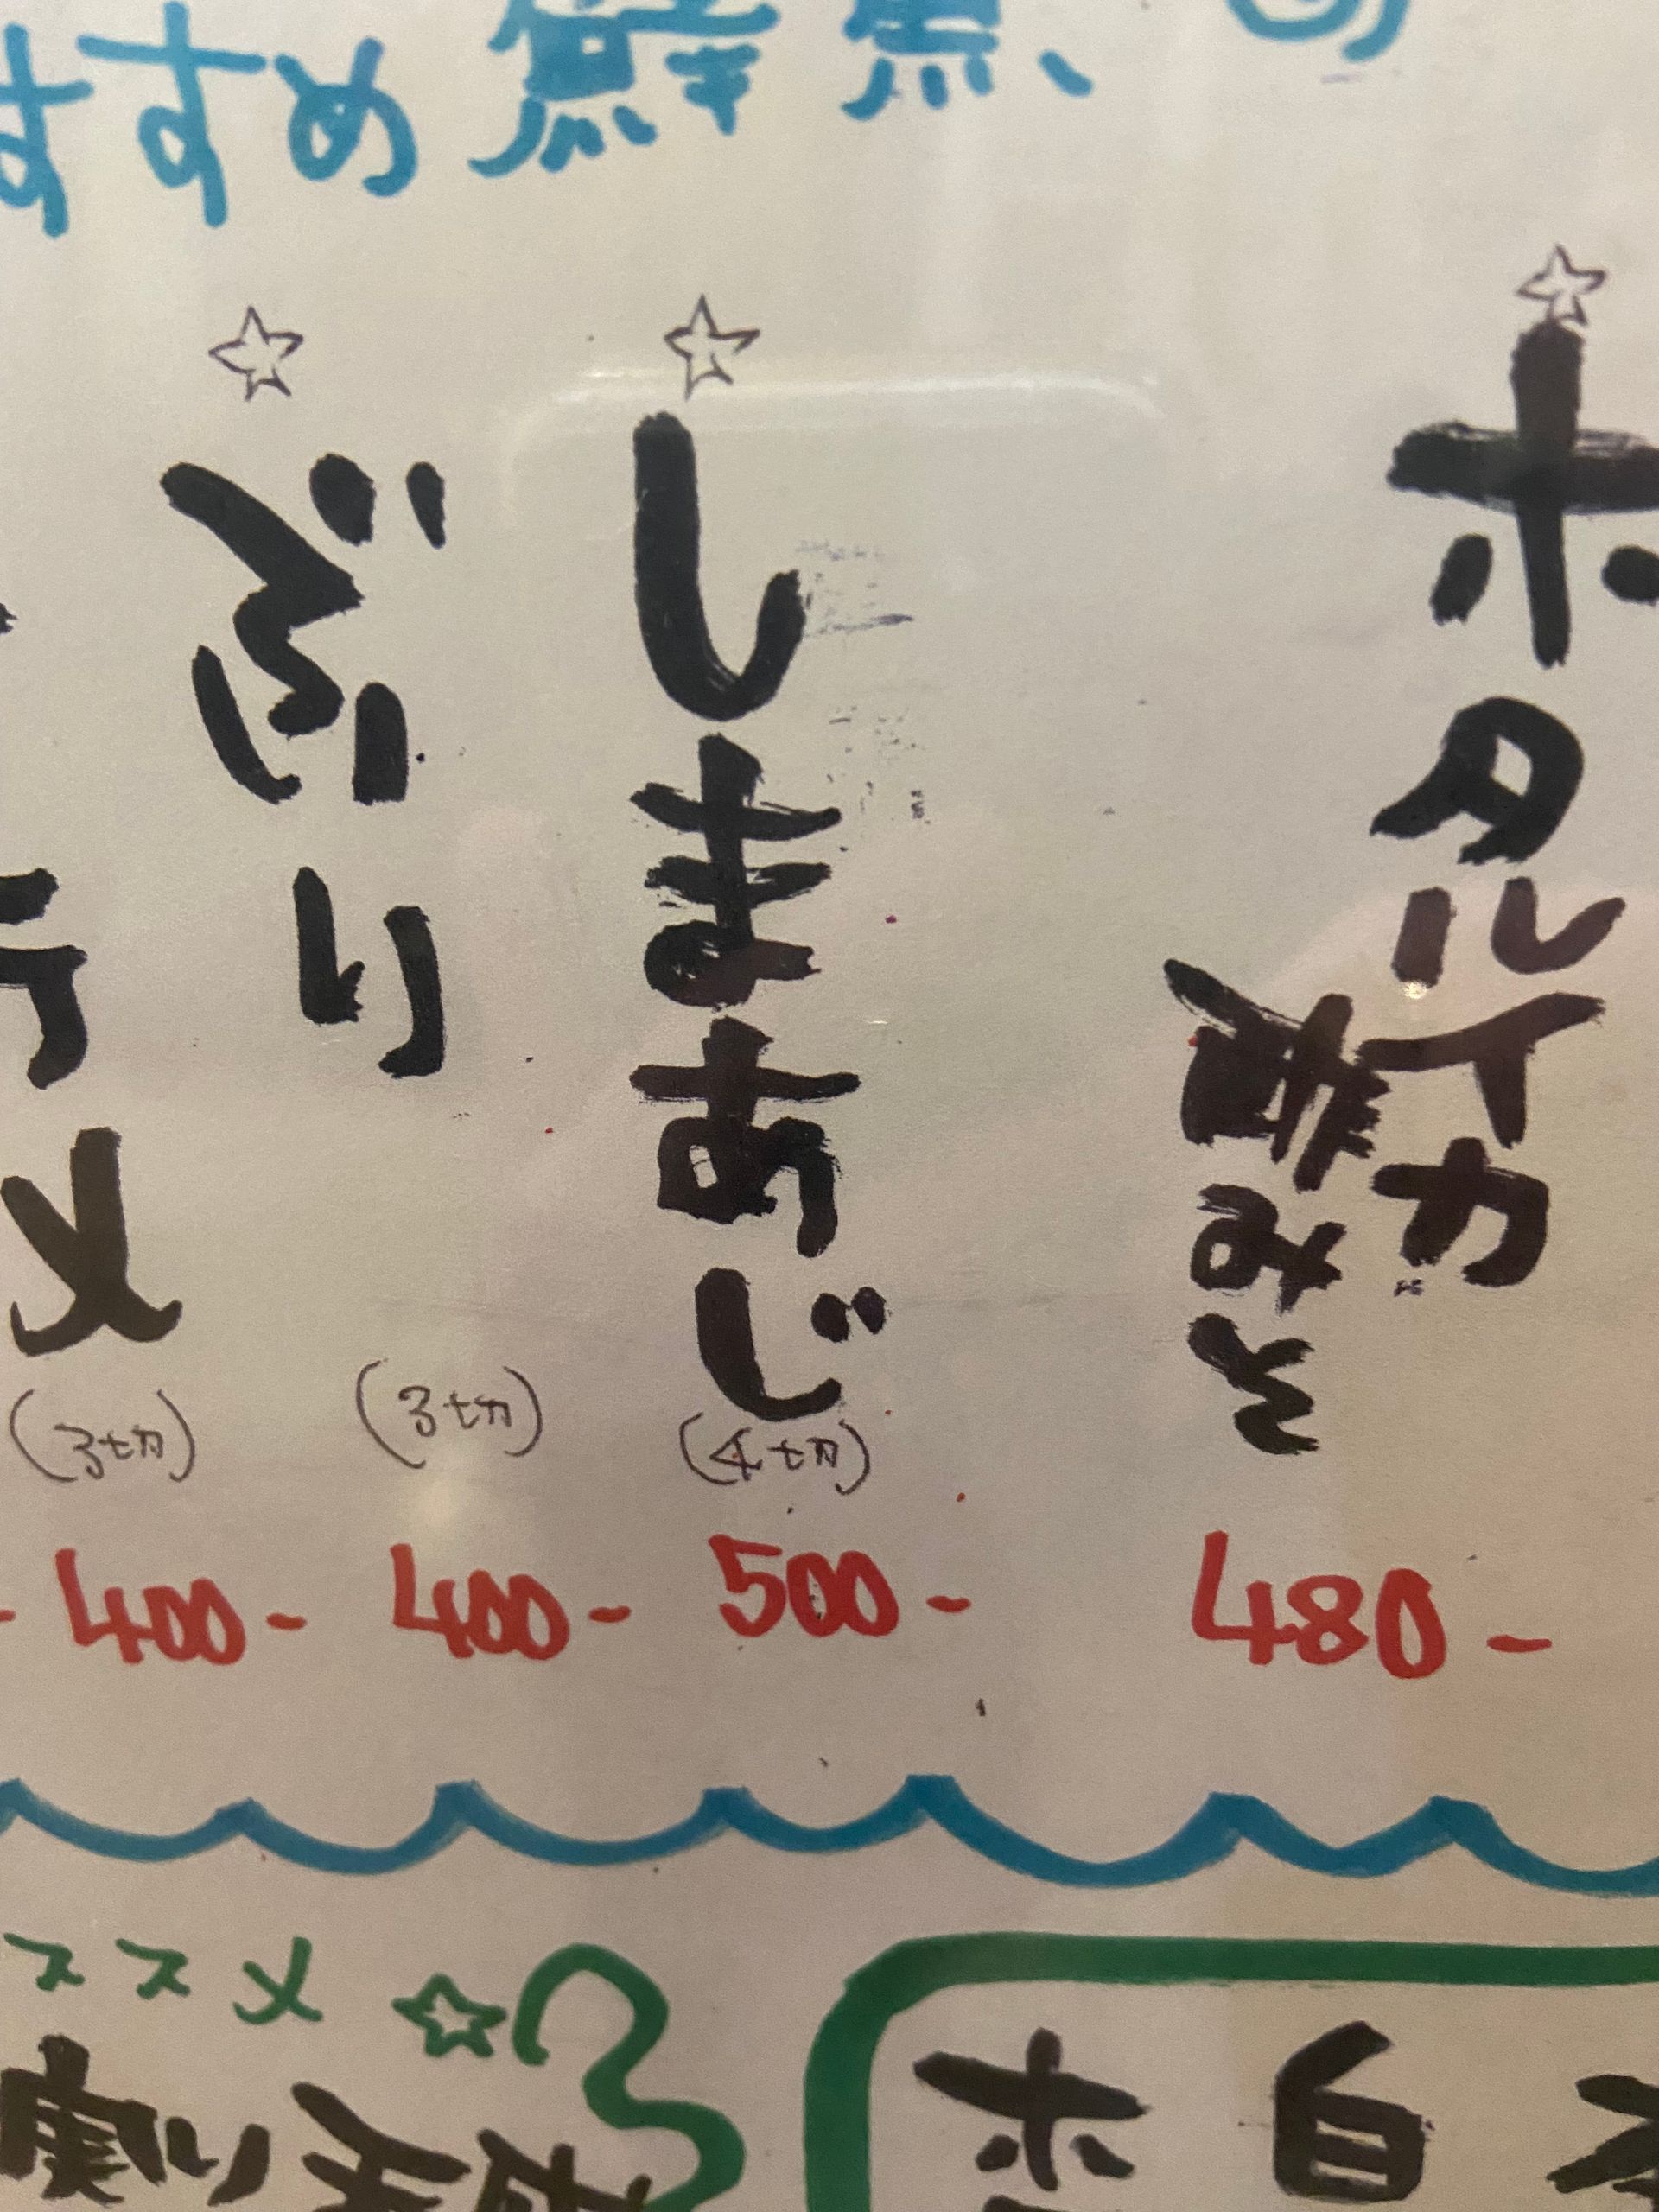 すすめ 鮮魚
ホタルイカ
酢みそ
480-
しまあじ
(4切)
500-
ぶり
(3切)
400-
(3切)
400-
ススメ